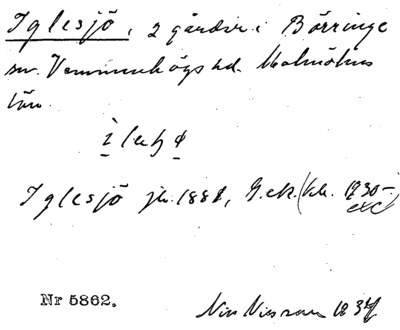 Iglesjö, 2 gårdar i Börringe
sn. Vemmenhögs hd. Malmöhus
län.
Iglesjö jb. 1881, G.ek. (kb. 1930-
Nr 5862.
Nils Nilsson 1934